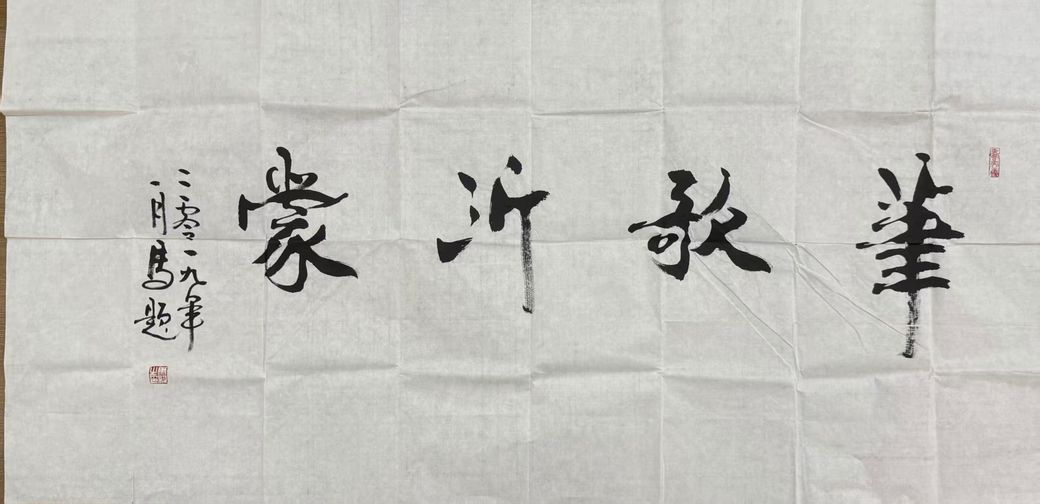 筆歌沂蒙
二零一九年
一月馬題